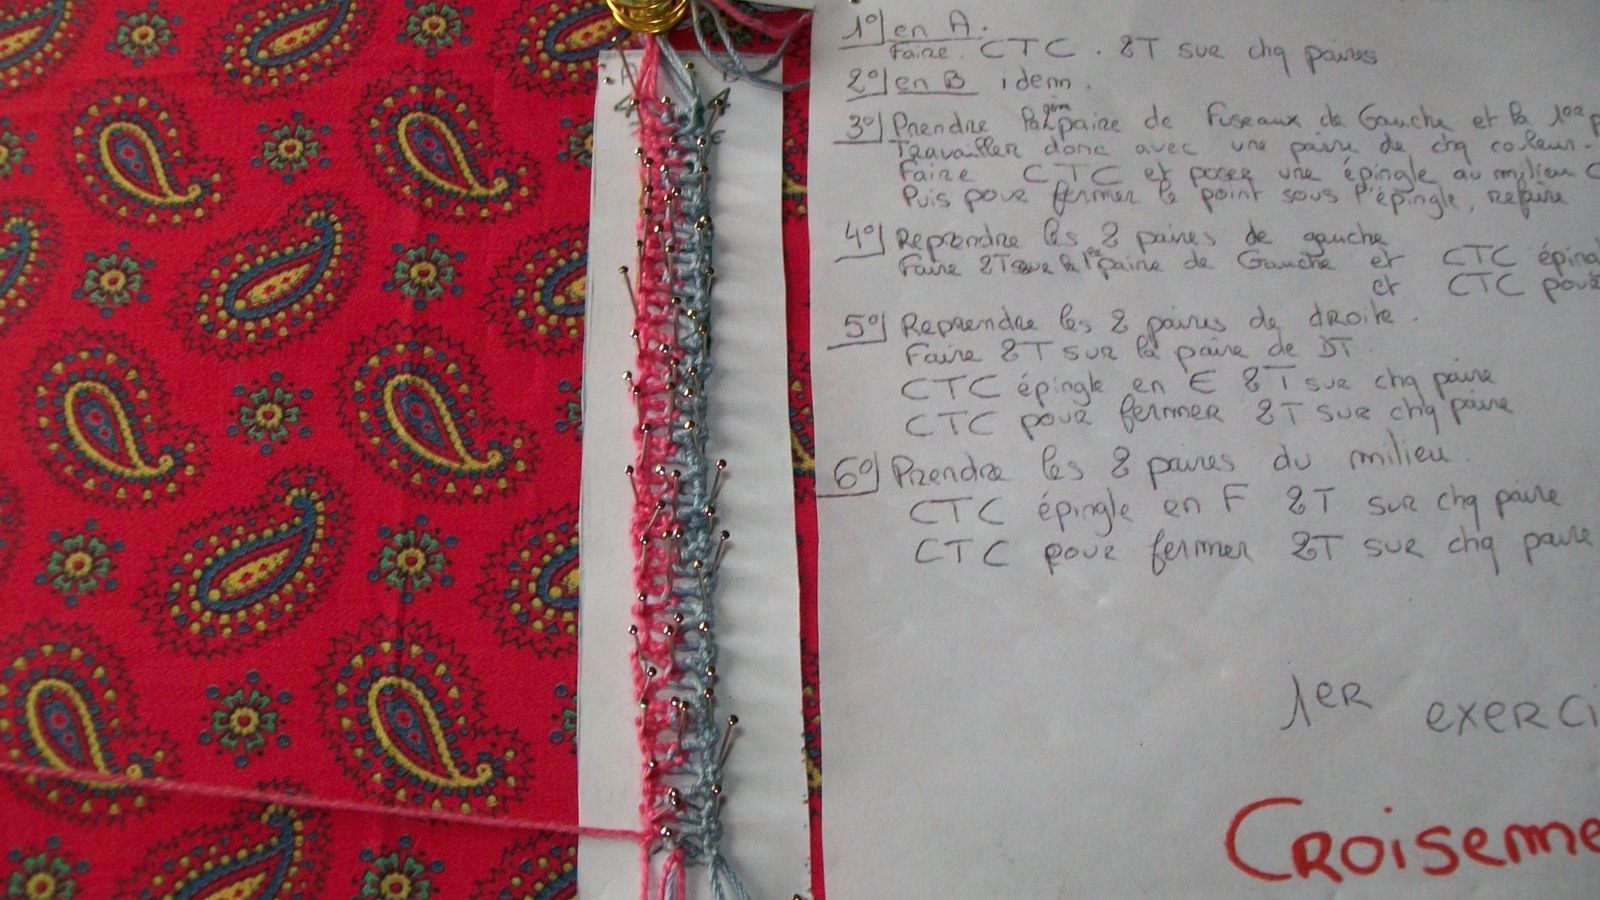 1°) en A.
Faire CTC. 2T sur chq paires
2°) en B idem.
3°) Prendre la 2èm paire de fuseaux de Gauche et la 1ere p
Travailler donc avec une paire de chq couleur.
Faire CTC et poser une épingle au milieu C
Puis pour fermer le point sous l'épingle, refaire
4°) Reprendre les 2 paires de gauche
Faire 2T sur la 1er paire de Gauche et CTC éping
et CTC pour
5°) Reprendre les 2 paires de droite.
Faire 2T sur la paire de DT
CTC épingle en E 2T sur chq paire
CTC pour fermer 2T sur chq paire
6°) Prendre les 2 paires du milieu.
CTC épingle en F 2T sur chq paire
CTC pour fermer 2T sur chq paire
1ER EXERCI
CROISEME